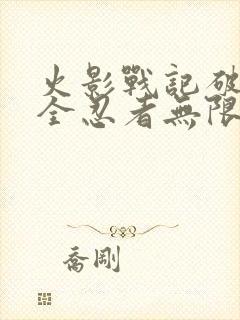 火影戰記破
全忍者無限
喬剛